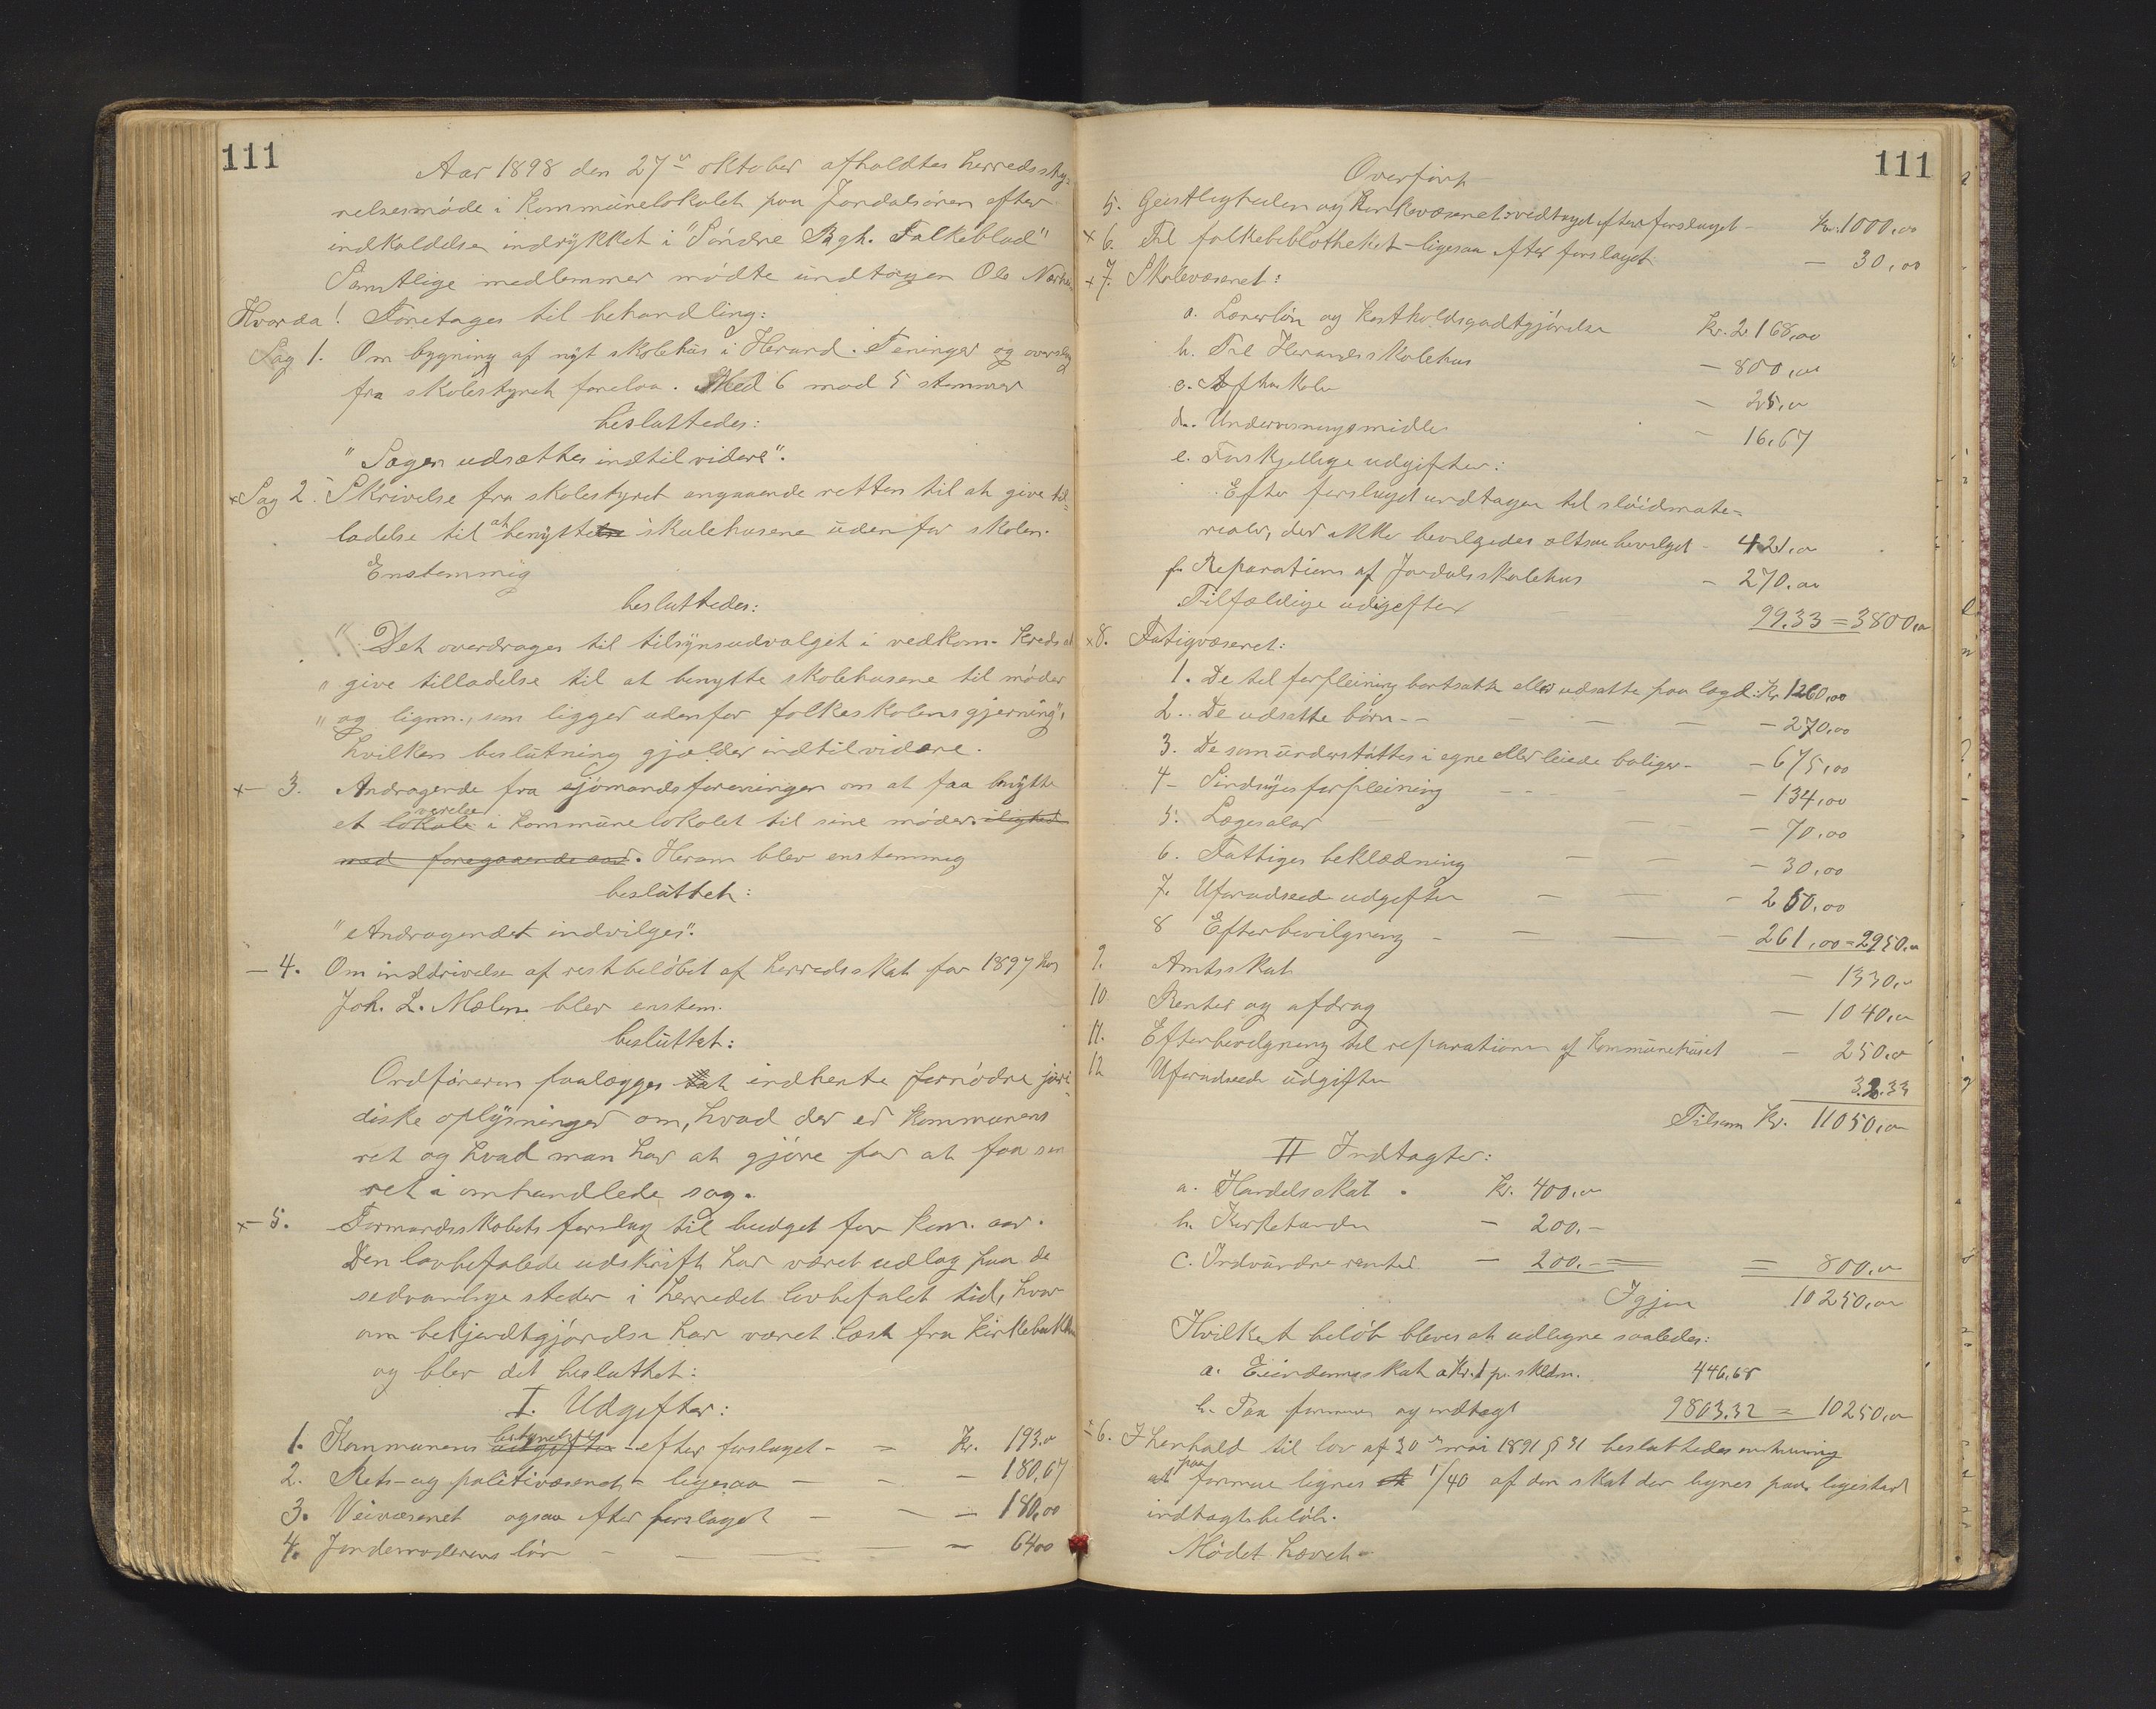 111
Aar 1898 den 27de oktober afholdtes herredssty-
relsesmøde i kommunelokalet paa Jondalsøren efter
indkaldelse indrykket i "Søndre Bgh. Folkeblad"
Samtlige medlemmer mødte undtagen Ole
Hvorda! Foretages til behandling:
Sag 1. Om bygning af nyt skolehus i Herand. Tegninger og overslag
fra skolestyret forelaa. Med 6 mod 5 stemmer
besluttedes:
"Sagen udsættes indtil videre".
× Sag 2. Skrivelse fra skolestyret angaaende retten til at give til-
ladelse til at benytte skolehusene udenfor skolen.
Enstemmig
besluttedes:
"Det overdrages til tilsynsudvalget i vedkom. kreds at
" give tilladelse til at benytte skolehusene til møder
" og lignn., som ligger udenfor folkeskolens gjerning",
hvilken beslutning gjælder indtil videre.
×— 3. Andragende fra sjømandsforeningen om at faa benytte
et lokale værelse i kommunelokalet til sine møder. i lighed
med foregaaende aar. Herom blev enstemmig
besluttet:
"Andragendet indvilges".
— 4. Om inddrivelse af restbeløbet af herredsskat for 1897 hos
Joh. L. Mælen blev enstem.
besluttet:
Ordføreren paalægges at indhente fornødne juri-
diske oplysninger om, hvad der er kommunens
ret og hvad man har at gjøre for at faa sin
ret i omhandlede sag.
×— 5. Formandsskabets forslag til budget for kom. aar.
Den lovbefalede udskrift har været udlag paa de
sedvanlige steder i herredet lovbefalet tid, hvor
om bekjendtgjørelse har været læst fra kirkebakken
og blev det besluttet:
I. Udgifter:
1. Kommunens bestyrelse udgifter - efter forslaget - = Kr. 193.00
2. Rets- og politivæsenet - ligesaa — - — 180,67
3. Veivæsenet ogsaa efter forslaget — - — 180,00
4. Jordemoderens løn — — — 64,00
111
Overført
5. Geistligheden og Kirkevæsenet: vedtaget efter forslaget - Kr. 1000,00
× 6. Til folkebibliotheket - ligesaa efter forslaget — 30,00
× 7. Skolevæsenet:
a. Lærerløn og kostholdsgodtgjørelse Kr. 2168,00
b. Til Herands skolehus — 800,00
c. Aftenskole — 25,00
d. Undervisningsmidler — 16,67
e. Forskjellige udgifter:
Efter forslaget undtagen til sløidmate-
rialer, der ikke bevilgedes altsaa bevilget - 421,00
f. Reparation af Jondals skolehus — 270.00
Tilfældige udgifter 99.33 = 3800,00
×8. Fatigvæsenet:
1. De til forpleining bortsatte eller udsatte paa lægd: Kr. 1260,00
2. De udsatte børn - — — — — 270,00
3. De som understøttes i egne eller leiede boliger - — 675,00
4 - Sindsyges forpleining — 134,00
5. Lægesalar — 70,00
6. Fattiges beklædning — — — 30,00
7. Uforudseede udgifter — — — 250,00
8 Efterbevilgning - — — — 261,00 = 2950,00
9. Amtsskat — 1330,00
10 Renter og afdrag — 1040,00
11. Efterbevilgning til reparation af Kommunehuset — 250,00
12 Uforudseede udgifter 32.33
Tilsam Kr. 11050,00
II Indtægter:
a. Handelsskat . Kr. 400,00
b. Kirketiender — 200,-
c. Indvundne renter — 200,- = = 800,00
Igjen 10250,00
Hvilket beløb bleves at udligne saaledes:
a. Eiendomsskat a Kr. 1 pr. skldm. 446,68
b. Paa formue og indtægt 9803.32 = 10250,00
×6. I henhold til lov af 30te mai 1891 § 31 besluttedes
at paa formue lignes 1/40 af den skat der lignes paa ligestort
indtægtsbeløb.
Mødet hævet.